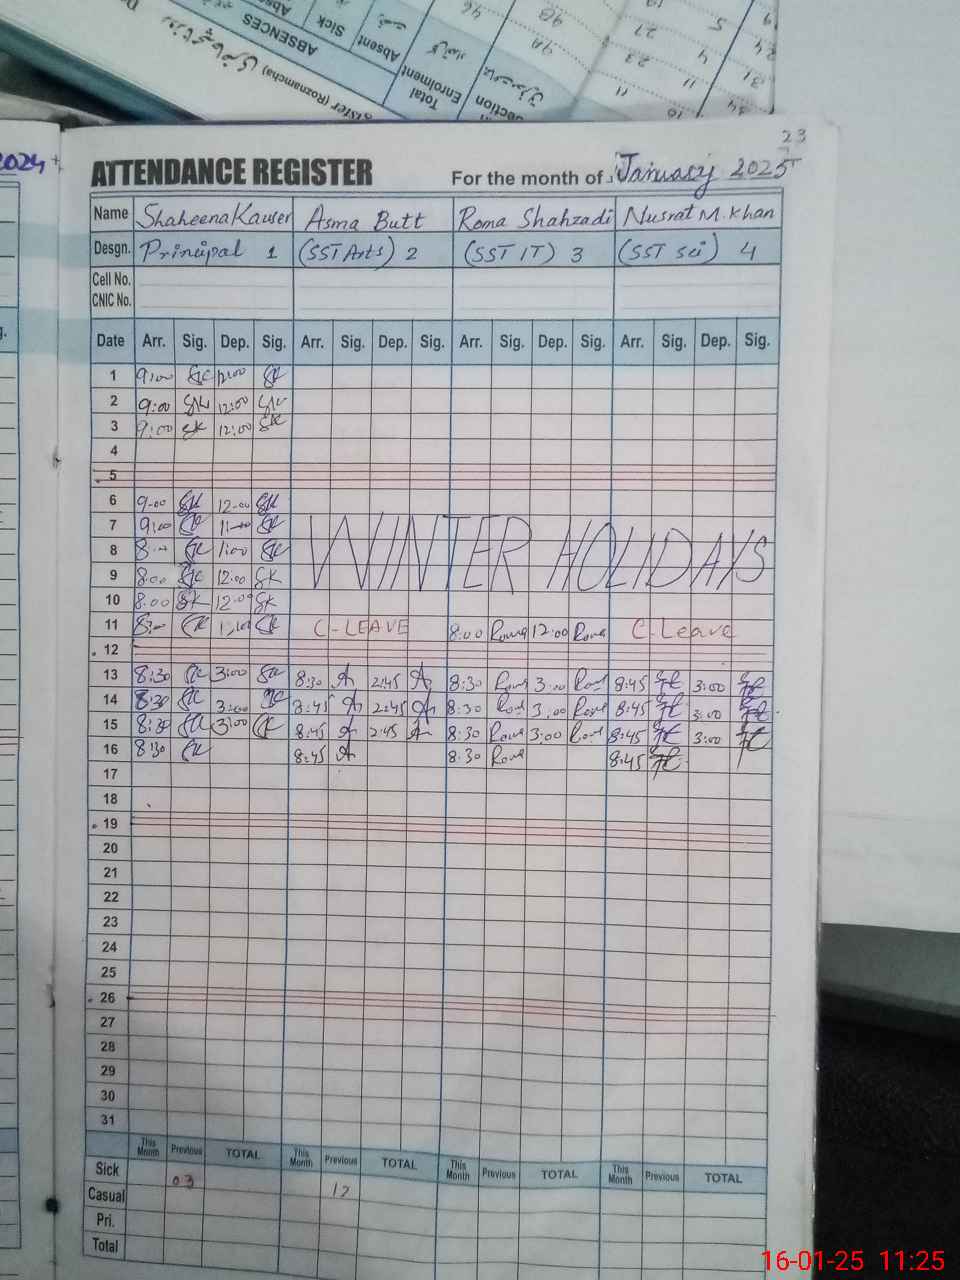 ABSENCES
Sick
Absent
Total
Enrolment
(Roznamcha)
2024
23
ATTENDANCE REGISTER For the month of January 2025
Name Shaheena Kauser Asma Butt Roma Shahzadi Nusrat M. Khan
Desgn. Principal 1 (SST Arts) 2 (SST IT) 3 (SST Sci) 4
Cell No.
CNIC No.
Date Arr. Sig. Dep. Sig. Arr. Sig. Dep. Sig. Arr. Sig. Dep. Sig. Arr. Sig. Dep. Sig.
1 9:00 SK 12:00 SK
2 9:00 SK 12:00 SK
3 9:00 SK 12:00 SK
4
5
6 9:00 SK 12:00 SK
7 9:00 SK SK
8 SK 1:00 SK
WINTER HOLIDAYS
9 8:00 SK 12:00 SK
10 8:00 SK 12:00 SK
11 SK SK C-LEAVE 8:00 Roma 12:00 Roma C-Leave
12
13 8:30 SK 3:00 SK 8:30 A 2:45 A 8:30 Roma 3:00 Roma 8:45 3:00
14 8:30 SK 3:00 SK 8:45 A 2:45 A 8:30 Roma 3:00 Roma 8:45 3:00
15 8:30 SK 3:00 SK 8:45 A 2:45 A 8:30 Roma 3:00 Roma 8:45 3:00
16 8:30 SK 8:45 A 8:30 Roma 8:45
17
18
19
20
21
22
23
24
25
26
27
28
29
30
31
This Month Previous TOTAL This Month Previous TOTAL This Month Previous TOTAL This Month Previous TOTAL
Sick 03
Casual 12
Pri.
Total
16-01-25 11:25